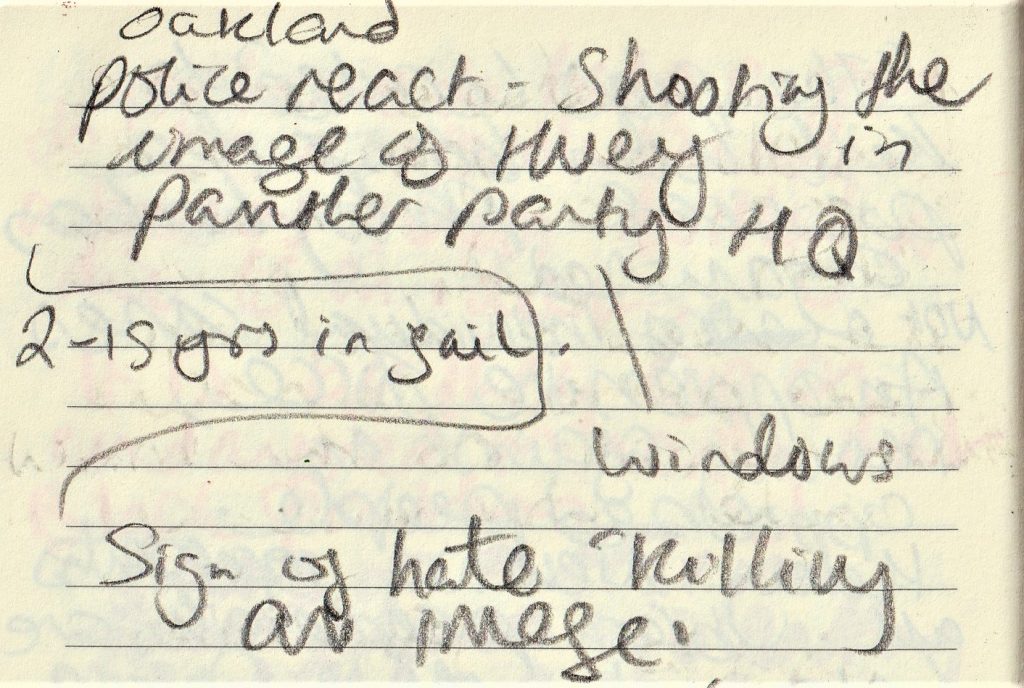 Oakland
police react - Shooting the
image of Huey in
Panther party HQ
2-15 yrs in jail.
windows
Sign of hate "Killing
an image.